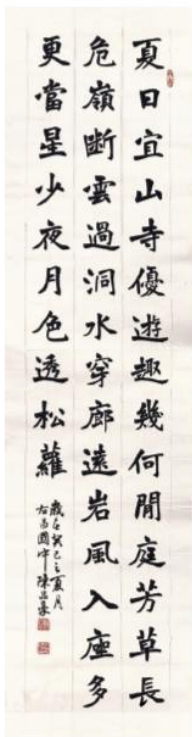 夏日宜山寺優遊趣幾何閒庭芳草長
危嶺斷雲過洞水穿廊遠岩風入座多
更當星少夜月色透松蘿
歲在癸巳之夏月
陳品豪